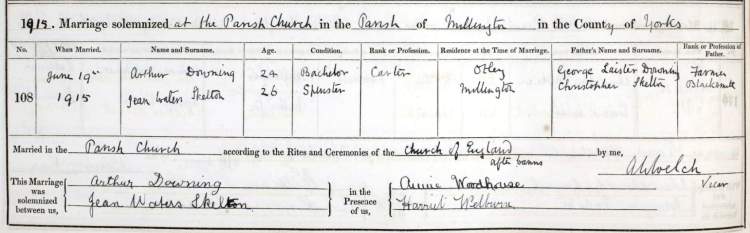 1915. Marriage solemnized at the Parish Church in the Parish of Millington in the County of Yorks
No. When Married. Name and Surname. Age. Condition. Rank or Profession. Residence at the Time of Marriage. Father's Name and Surname. Rank or Profession of Father.
June 19th Arthur Downing 24 Bachelor Carter Otley George Laister Downing Farmer
108 1915 Jean Waters Skelton 26 Spinster Millington Christopher Skelton Blacksmith
Married in the Parish Church according to the Rites and Ceremonies of the Church of England by me,
after banns
A Welch
Vicar
This Marriage was solemnized between us, Arthur Downing in the Presence of us, Annie Woodhouse
Jean Waters Skelton Harriet Welburn